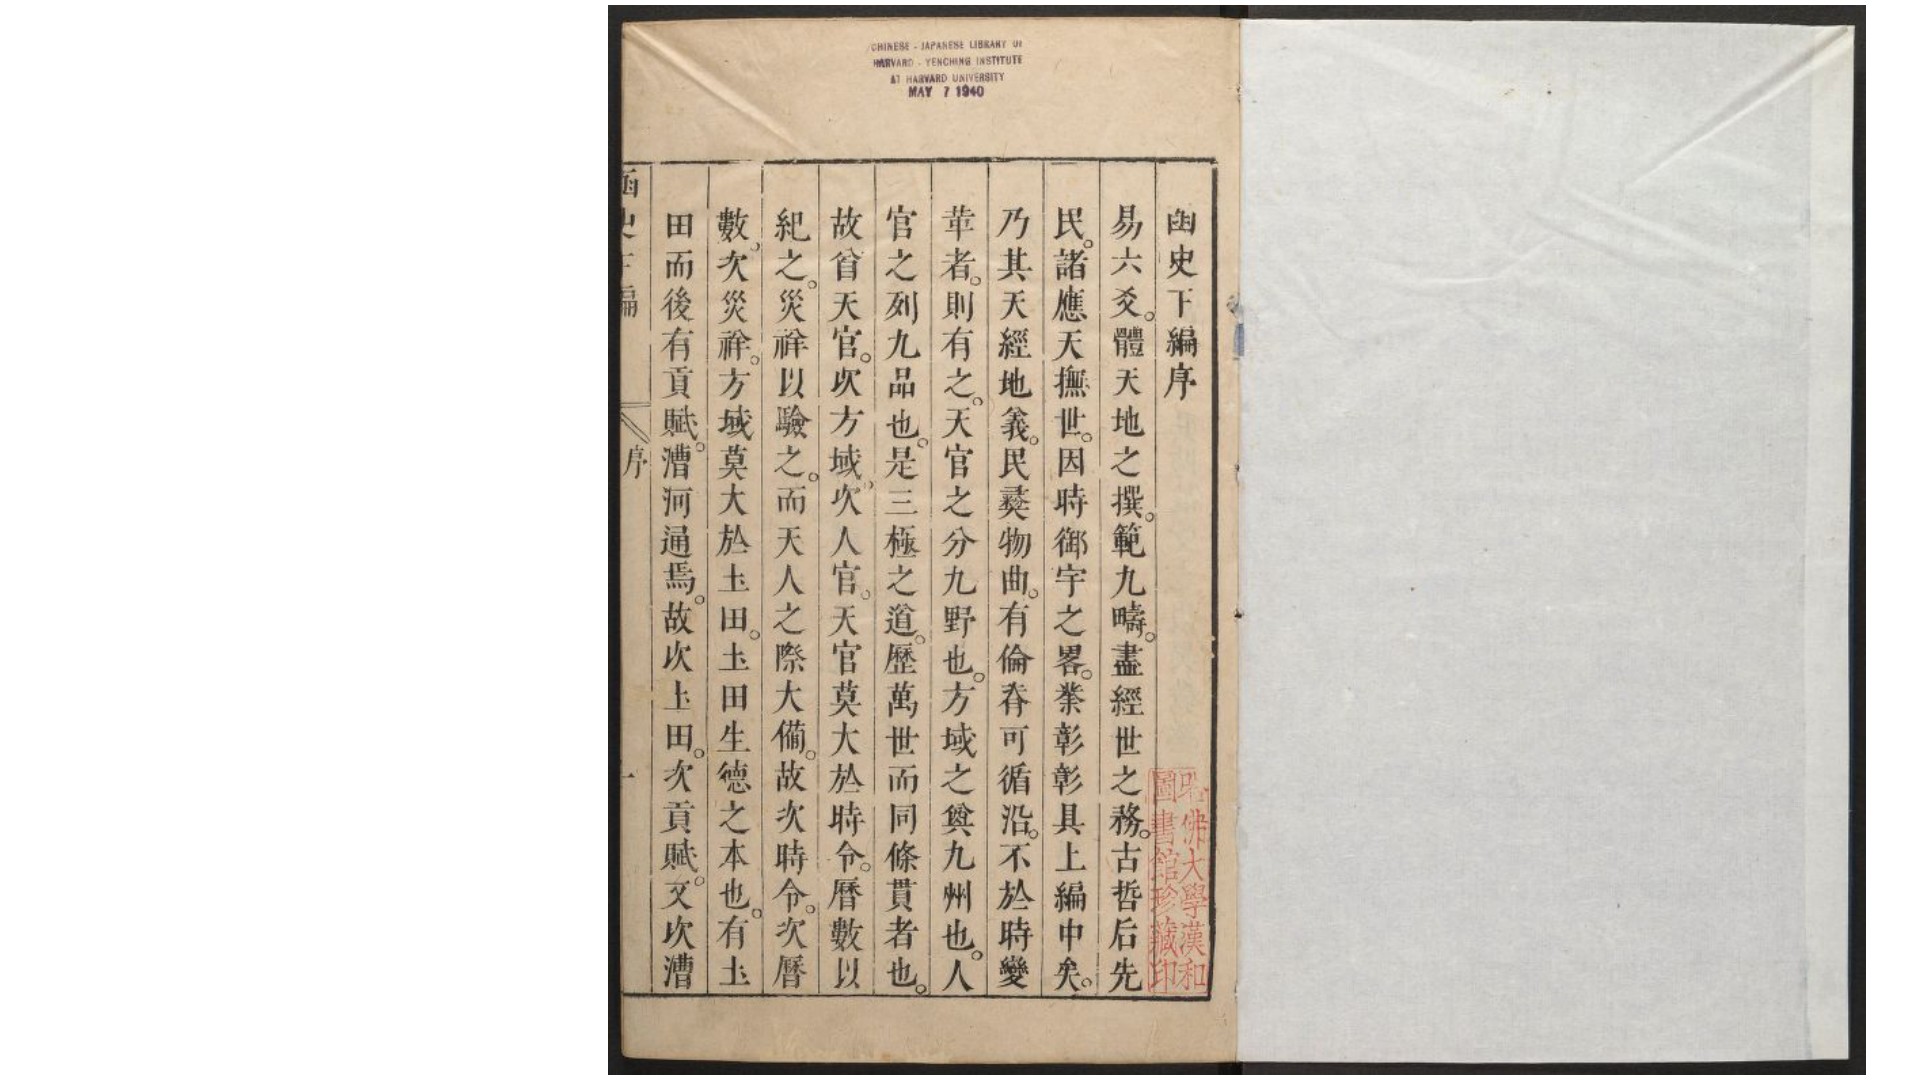 CHINESE - JAPANESE LIBRARY OF
HARVARD - YENCHING INSTITUTE
AT HARVARD UNIVERSITY
MAY 7 1940
函史下編序
易六爻。體天地之撰。範九疇。盡經世之務。古哲后先
民。諸應天撫世。因時御宇之畧。業彰彰具上編中矣。
乃其天經地義。民彛物曲。有倫脊可循沿。不於時變
革者。則有之。天官之分九野也。方域之奠九州也。人
官之列九品也。是三極之道。歷萬世而同條貫者也。
故首天官。次方域。次人官。天官莫大於時令。曆數以
紀之。災祥以驗之。而天人之際大備。故次時令。次曆
數。次災祥。方域莫大於土田。土田生德之本也。有土
田而後有貢賦。漕河通焉。故次土田。次貢賦。又次漕
函史下編
序
一
哈佛大學漢和
圖書館珍藏印